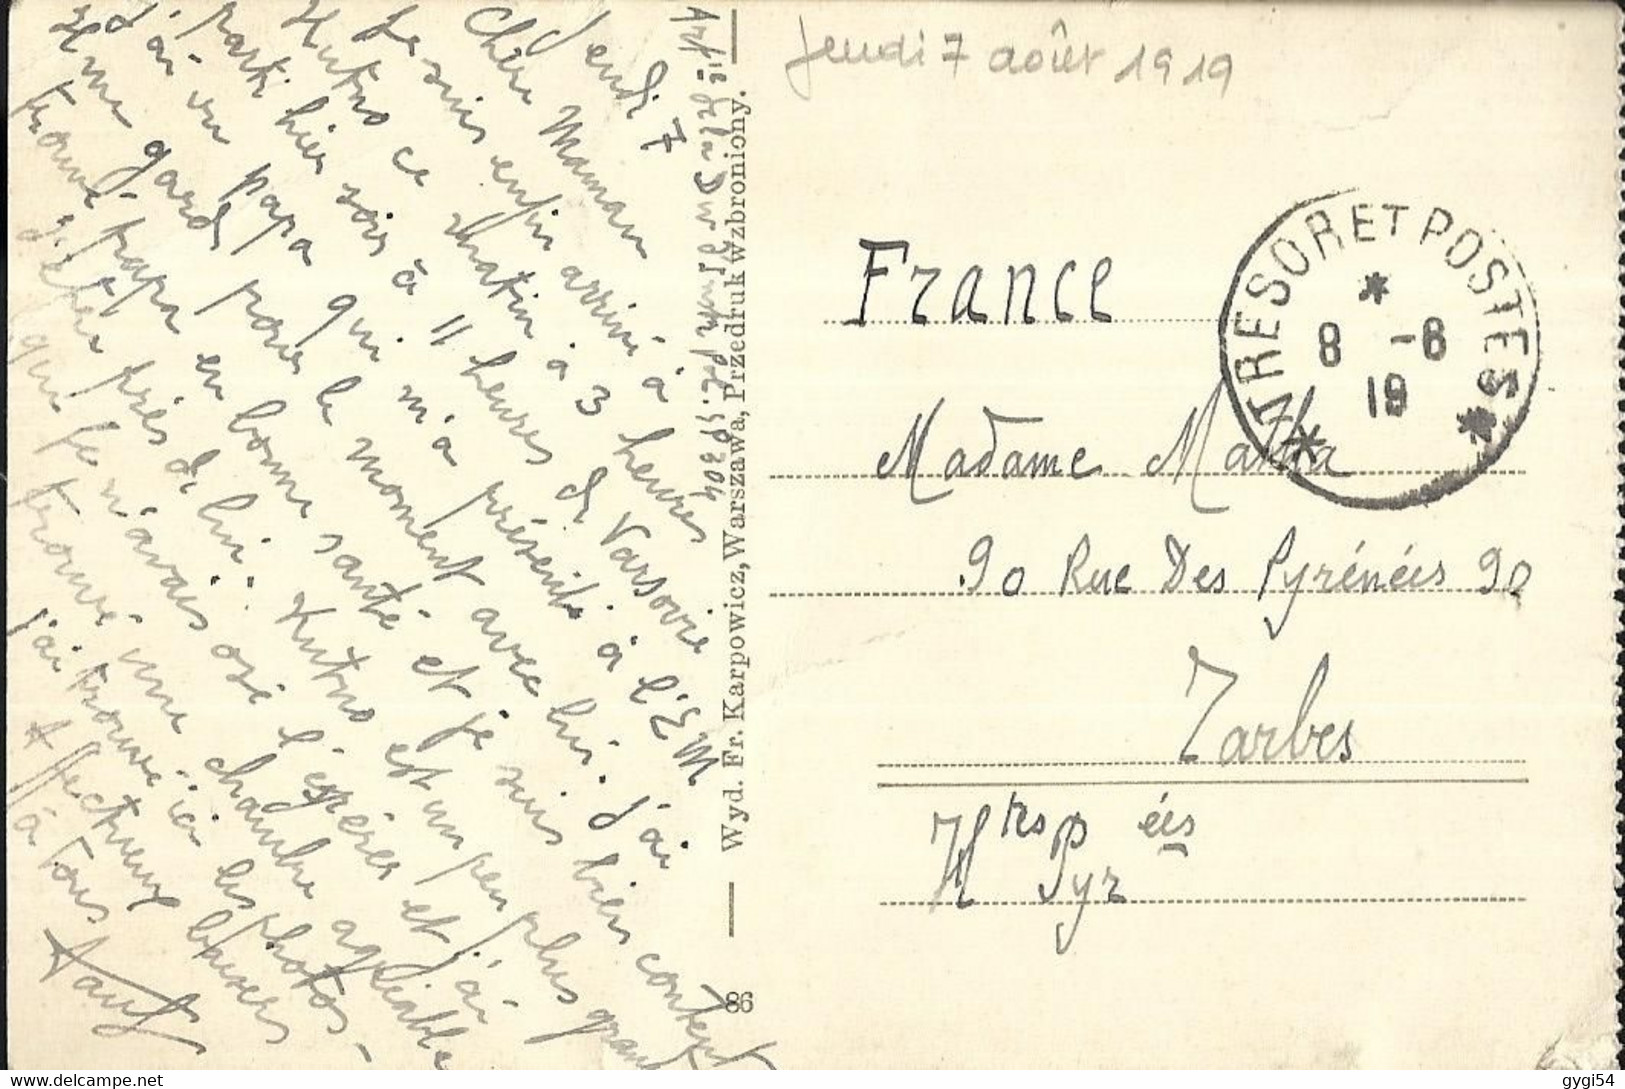 Jeudi 7 août 1919
Jeudi 7
Chère Maman
Je suis enfin arrivé à
Kutno ce matin à 3 heures
parti hier soir à 11 heures de Varsovie
J'ai vu papa qui m'a présenté à l'E.M
qui me garde pour le moment avec lui. J'ai
trouvé papa en bonne santé et je suis bien content
d'être près de lui. Kutno est un peu plus grand
que je n'avais osé l'espérer et j'ai
trouvé une chambre agréable
j'ai trouvé ici les photos -
Affectueux baisers
à tous
Wyd. Fr. Karpowicz, Warszawa, Przedruk wzbroniony.
86
TRESOR ET POSTES
8 -8
19
France
Madame Matha
90 Rue Des Pyrénées 90
Tarbes
Htes Pyr ées
gygi54